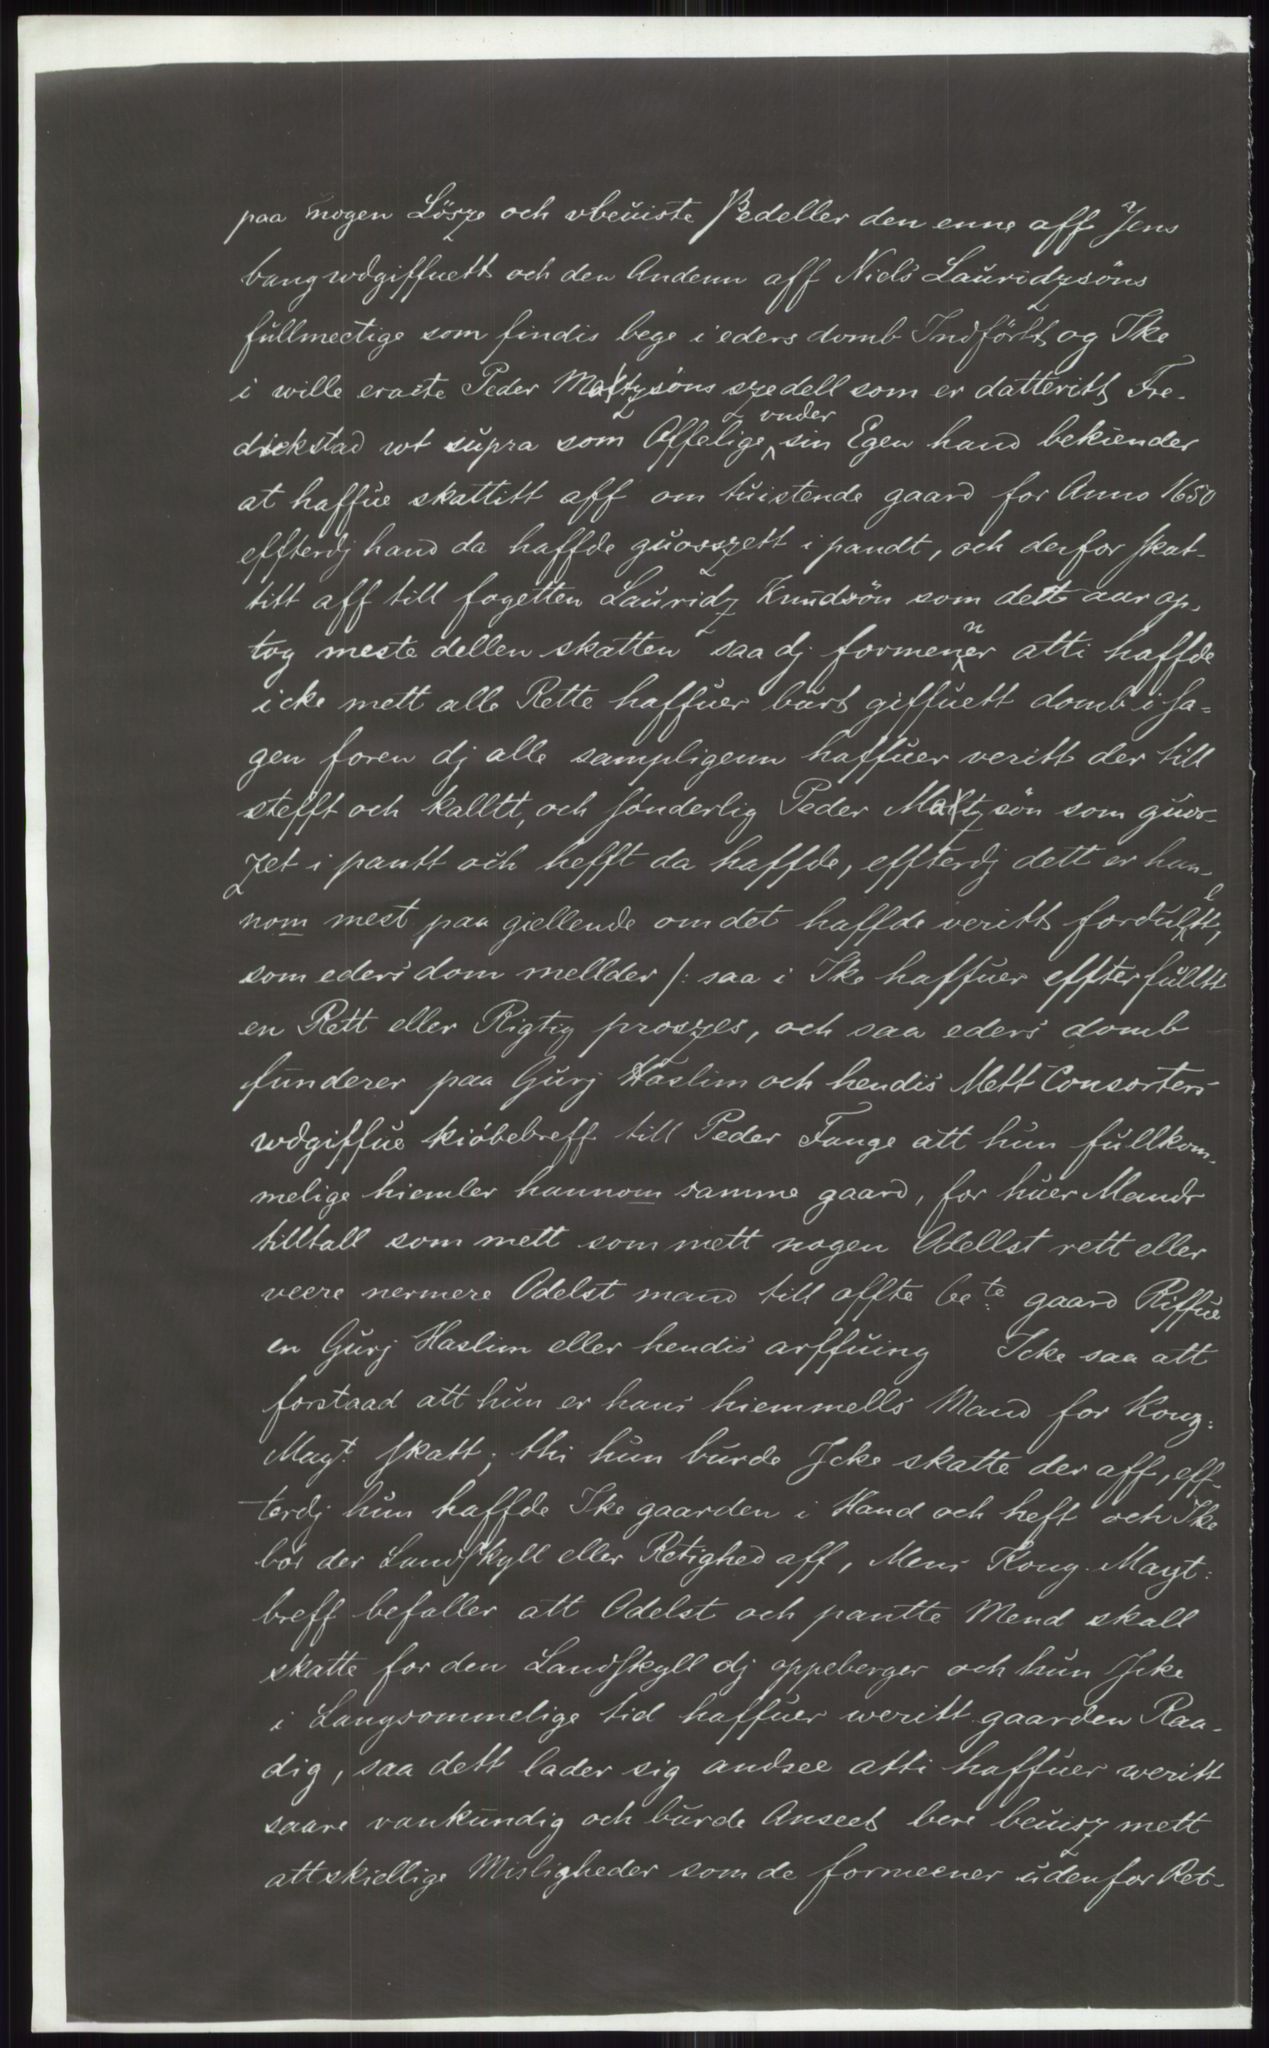 paa nogen Lösze och vbeuiste Zedeller den enne aff Jens
bang wdgiffuett och den Andenn aff Niels Lauridzsöns
fullmectige som findis bege i eders domb Indförtt, og Ike
i wille eracte Peder Maltzsöns szedell som er datteritt Fre-
dickstad wt supra som Offelige under sin Egen hand bekiender
at haffue skattitt aff om tuistende gaard for Anno 1650
effterdj hand da haffde guosszett i pandt, och derfor skat-
titt aff till fogetten Lauridz Knudsön som dett aar op-
tog meste dellen skatten saa dj formenner atti haffde
icke mett alle Rette haffuer burt giffuett domb i sa-
gen foren dj alle sampligenn haffuer veritt der till
stefft och kalltt, och sønderlig Peder Maltzsön som guos-
zet i pantt och hefft da haffde, effterdj dett er han-
nom mest paa giellende om det haffde veritt fordultt,
som eders dom mellder /: saa i Ike haffuer effterfulltt
en Rett eller Rigtig proszes, och saa eders domb
funderer paa Gurj Haslim och hendis Mett Consorters
wdgiffue kiöbebreff till Peder Fange att hun fullkom-
melige hiemler hannom samme gaard, for huer Mands
tilltall som mett som mett nogen Odellst rett eller
veere nermere Odelst mand till offte be:te gaard Riffue
en Gurj Haslim eller hendis arffuing Icke saa att
forstaad att hun er hans hiemmells Mand for Kong:
Mayt: skatt; thi hun burde Icke skatte der aff, eff-
terdj hun haffde Ike gaarden i Hand och heft och Ike
bör der Landskyll eller Retighed aff, Mens Kong. Mayt:
breff befaller att Odelst och pantte Mend skall
skatte for den Landskyll dj oppeberger och hun Icke
i Langsommelige tid haffuer weritt gaarden Raa-
dig, saa dett lader sig andsee atti haffuer weritt
saare vankundig och burde Anseet bere beuisz mett
attskiellige Misligheder som de formeener uden for Ret-